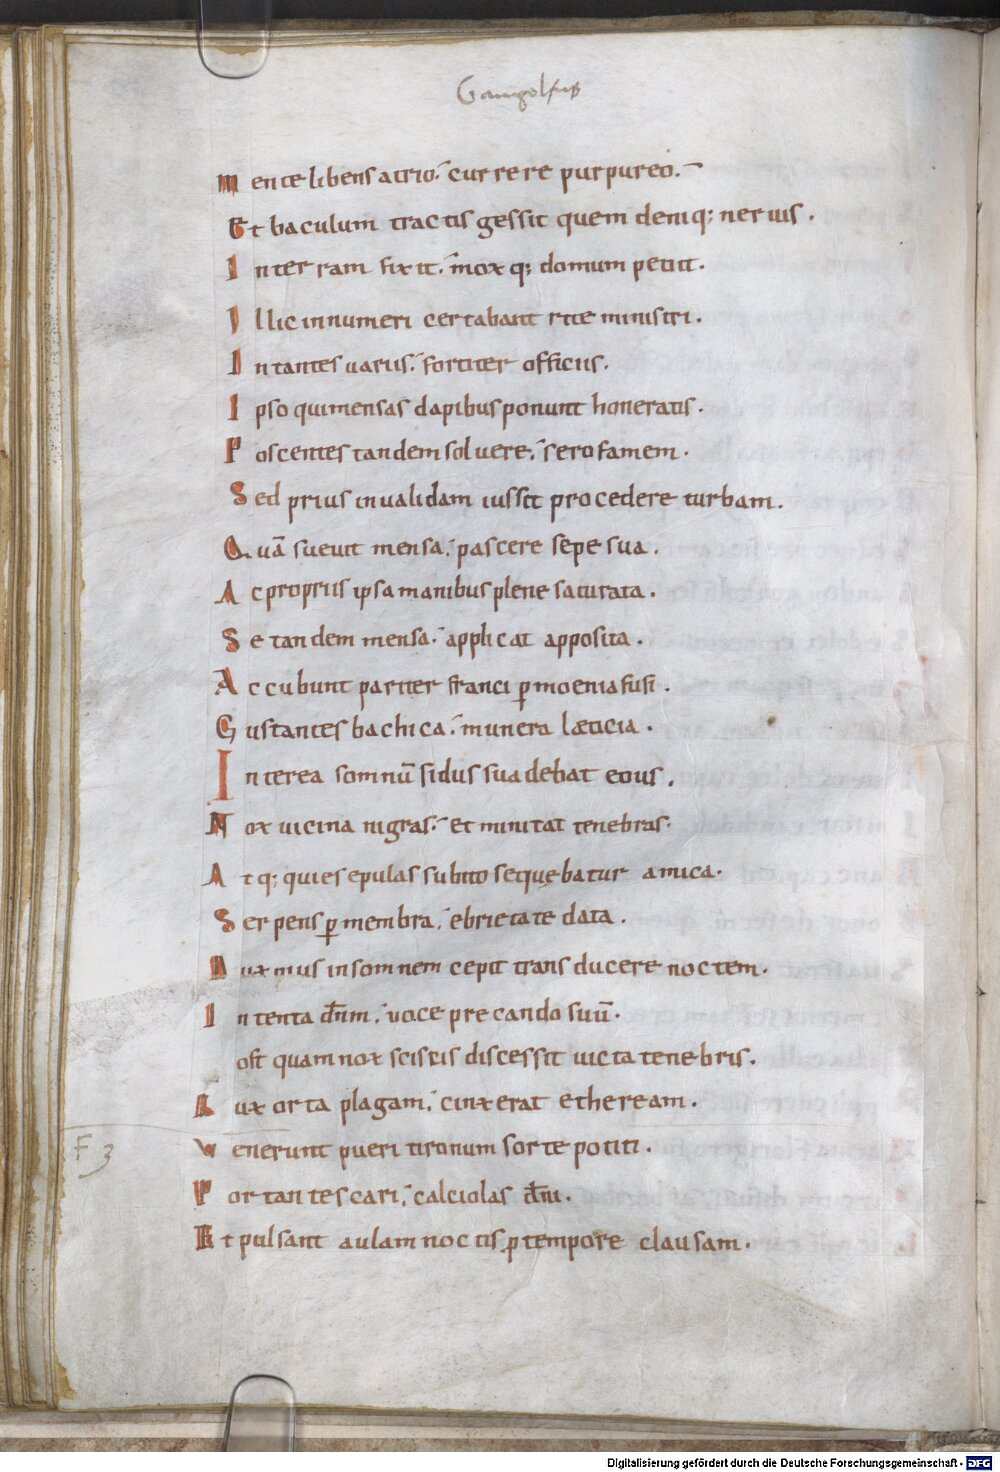 Gangolfus
Mente libens atrio. currere purpureo.
Et baculum tractis gessit quem deniq; neruis.
In terram fixit. mox q; domum petiit.
Illic innumeri certabant rite ministri.
Intantes uariis. fortiter officiis.
Ipso qui mensas dapibus ponunt honeratis.
Poscentes tandem soluere. sero famem.
Sed prius inualidam iussit procedere turbam.
Quā sueuit mensa. pascere sepe sua.
Ac propriis ipsa manibus plene saturata.
Se tandem mensa. applicat apposita.
Accubunt pariter franci ꝑ moenia fusi.
Gustantes bachica. munera læticia.
Interea somnū sidus suadebat eous.
Nox uicina nigras. et minitat tenebras.
Atq; quies epulas subito sequebatur amica.
Serpens ꝑ membra. ebrietate data.
Dux nius insomnem cepit transducere noctem.
Intenta dn̄m. uoce precando suū.
ost quam nox scissis discessit uicta tenebris.
Lux orta plagam. cinxerat etheream.
Venerunt pueri tironum sorte potiti.
Portantes cari. calciolas dn̄i.
Et pulsant aulam noctis ꝑ tempore clausam.
F 3
Digitalisierung gefördert durch die Deutsche Forschungsgemeinschaft - DFG